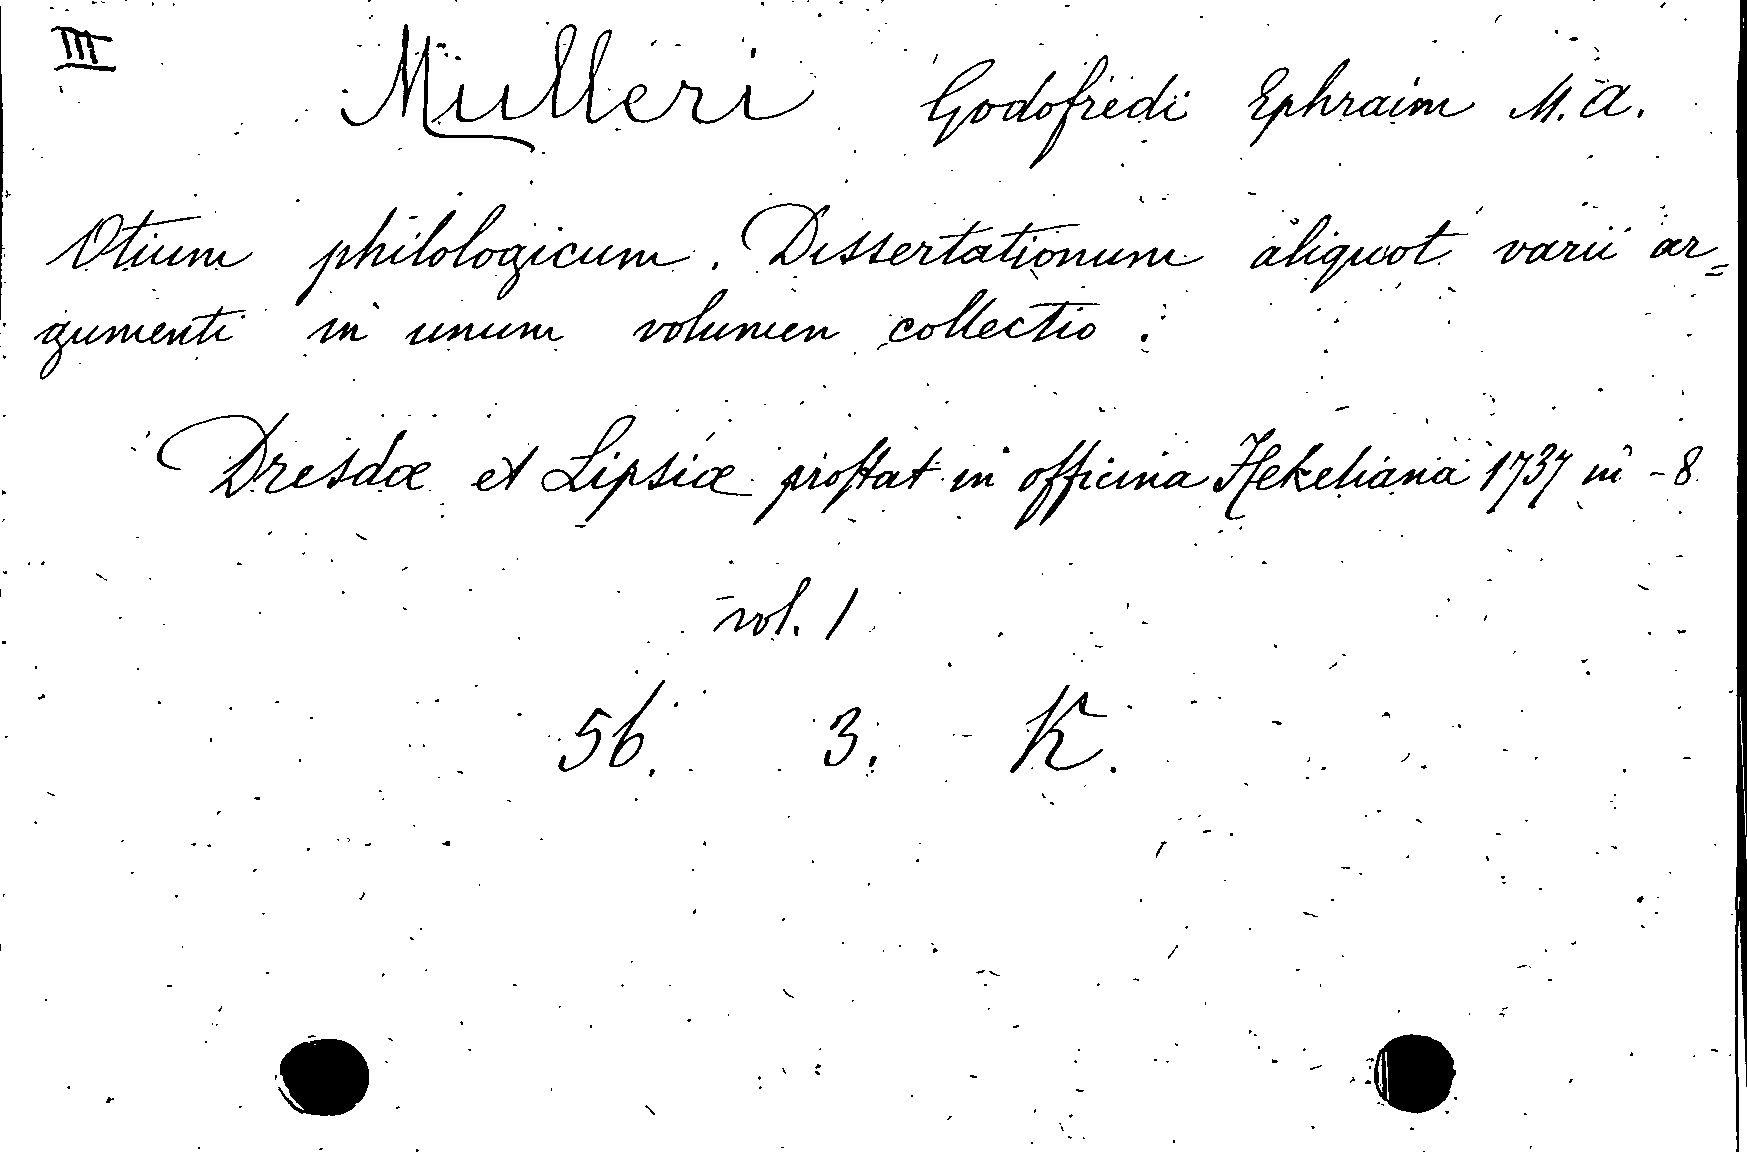 III
Mulleri Godofredi Ephraim M. A.
Otium philologicum. Dissertationum aliquot varii ar=
gumenti in unum volumen collectio.
Dresdæ et Lipsiæ prostat in officina Hekeliana 1737 in -8
vol. 1
56. 3. K.